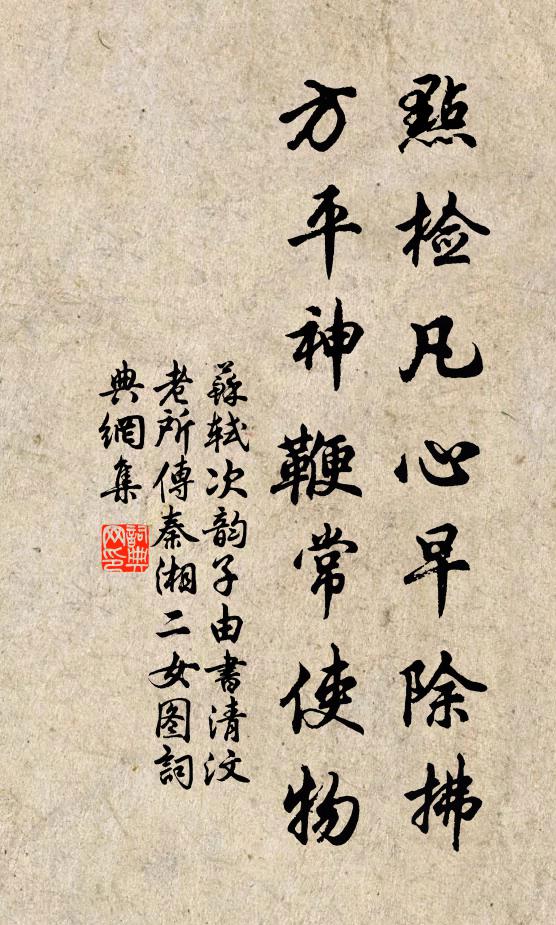 點檢凡心早除拂
方平神鞭常使物
蘇軾次韵子由書清汶
老所傳秦湘二女图詞
典網集
詞典
网印